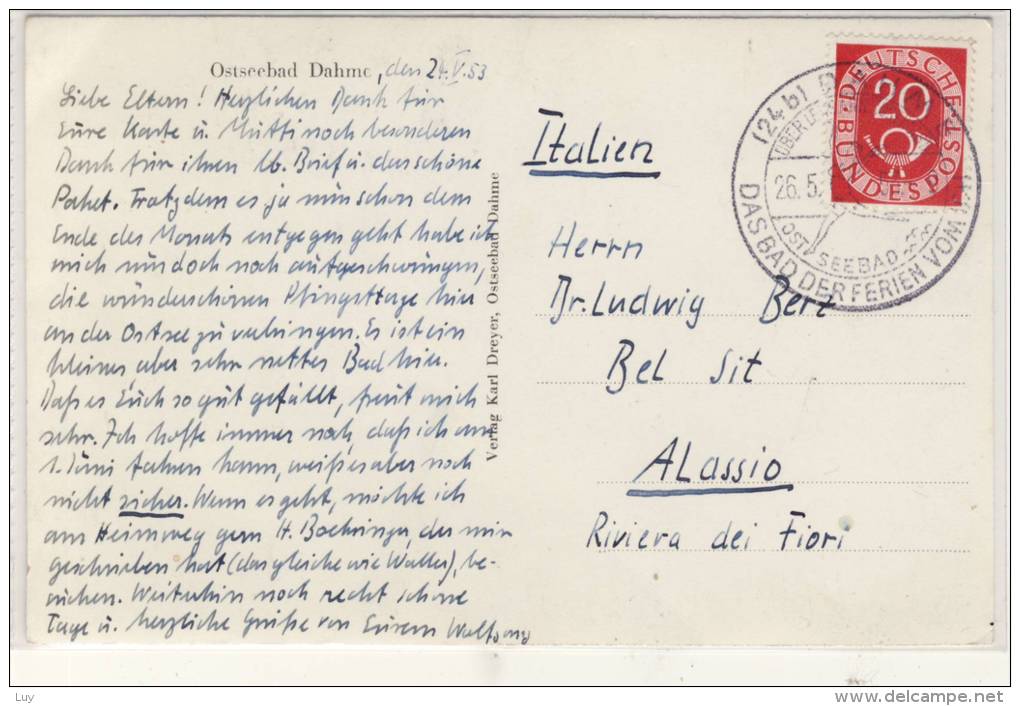 Ostseebad Dahme, den 24.V.53
Liebe Eltern! Herzlichen Dank für
Eure Karte u. Mutti noch besonderen
Dank für ihren lb. Brief u. das schöne
Paket. Trotzdem es ja nun schon dem
Ende des Monats entgegen geht habe ich
mich nun doch noch aufgeschwungen,
die wunderschönen Pfingsttage hier
an der Ostsee zu verbringen. Es ist ein
kleines, aber sehr nettes Bad hier.
Daß es Euch so gut gefällt, freut mich
sehr. Ich hoffe immer noch, daß ich am
1. Juni fahren kann, weiß es aber noch
nicht sicher. Wenn es geht, möchte ich
am Heimweg gern H. Boehringer, der mir
geschrieben hat (das gleiche wie Walter), be-
suchen. Weiterhin noch recht schöne
Tage u. herzliche Grüße von Eurem Wolfgang
Verlag Karl Dreyer, Ostseebad Dahme
Italien
Herrn
Dr. Ludwig Berz
Bel Sit
ALassio
Riviera dei Fiori
DEUTSCHE BUNDESPOST
20
(24b)
ÜBER
26.5.
OSTSEEBAD
DAS BAD DER FERIEN VOM
Luy
delcampe.net